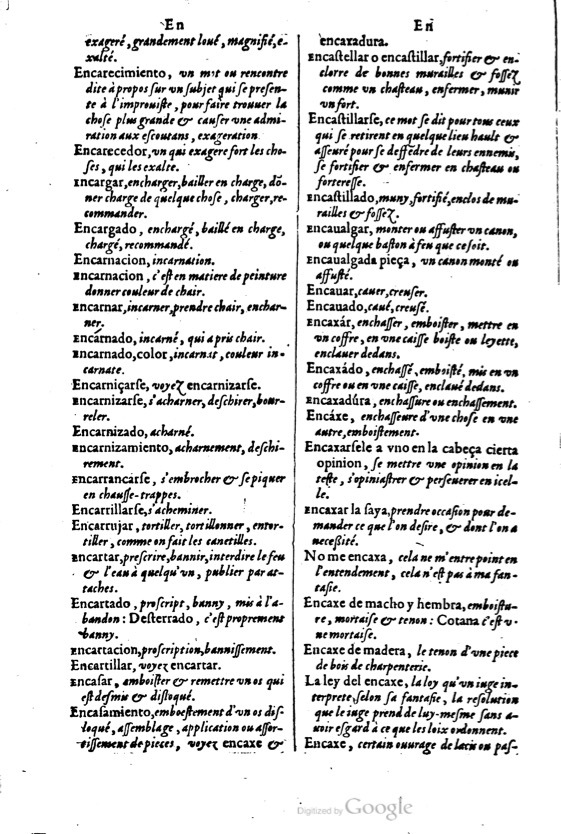 En
exageré, grandement loué, magnifié, e-
xalté.
Encarecimiento, vn mot ou rencontre
dite à propos ſur vn ſubjet qui ſe preſen-
te à l'improuiſte, pour faire trouuer la
choſe plus grande & cauſer vne admi-
ration aux eſcoutans, exageration.
Encarecedor, vn qui exagere fort les cho-
ſes, qui les exalte.
Encargar, encharger, bailler en charge, dō-
ner charge de quelque choſe, charger, re-
commander.
Encargado, enchargé, baillé en charge,
chargé, recommandé.
Encarnacion, incarnation.
Encarnacion, c'eſt en matiere de peinture
donner couleur de chair.
Encarnar, incarner, prendre chair, enchar-
ner.
Encarnado, incarné, qui a pris chair.
Encarnado, color, incarnat, couleur in-
carnate.
Encarniçarſe, voyez encarnizarſe.
Encarnizarſe, s'acharner, deſchirer, bour-
reler.
Encarnizado, acharné.
Encarnizamiento, acharnement, deſchi-
rement.
Encarrancarſe, s'embrocher & ſe piquer
en chauſſe-trappes.
Encarrillarſe, s'acheminer.
Encarrujar, tortiller, tortillonner, entor-
tiller, comme on fait les canetilles.
Encartar, preſcrire, bannir, interdire le feu
& l'eau à quelqu'vn, publier par at-
taches.
Encartado, proſcript, banny, mis à l'a-
bandon: Deſterrado, c'eſt proprement
banny.
Encartacion, proſcription, banniſſement.
Encartillar, voyez encartar.
Encaſar, emboiſter & remettre vn os qui
eſt deſmis & diſloqué.
Encaſamiento, emboeſtement d'vn os diſ-
loqué, aſſemblage, application ou aſſor-
tiſſement de pieces, voyez encaxe &
En
encaxadura.
Encaſtellar o encaſtillar, fortifier & en-
clorre de bonnes murailles & foſſez
comme vn chaſteau, enfermer, munir
vn fort.
Encaſtillarſe, ce mot ſe dit pour tous ceux
qui ſe retirent en quelque lieu hault &
aſſeuré pour ſe deffēdre de leurs ennemis,
ſe fortifier & enfermer en chaſteau ou
fortereſſe.
Encaſtillado, muny, fortifié, enclos de mu-
railles & foſſez.
Encaualgar, monter ou affuſter vn canon,
ou quelque baſton à feu que ce ſoit.
Encaualgada pieça, vn canon monté ou
affuſté.
Encauar, cauer, creuſer.
Encauado, caué, creuſé.
Encaxár, enchaſſer, emboiſter, mettre en
vn coffre, en vne caiſſe boiſte ou leyette,
enclauer dedans.
Encaxádo, enchaſſé, emboiſté, mis en vn
coffre ou en vne caiſſe, enclaué dedans.
Encaxadúra, enchaſſure ou enchaſſement.
Encáxe, enchaſſeure d'vne choſe en vne
autre, emboiſtement.
Encaxarſele a vno en la cabeça cierta
opinion, ſe mettre vne opinion en la
teſte, s'opiniaſtrer & perſeuerer en icel-
le.
Encaxar la ſaya, prendre occaſion pour de-
mander ce que l'on deſire, & dont l'on a
neceſſité.
No me encaxa, cela ne m'entre point en
l'entendement, cela n'eſt pas à ma fan-
taſie.
Encaxe de macho y hembra, emboiſtu-
re, mortaiſe & tenon: Cotana c'eſt v-
ne mortaiſe.
Encaxe de madera, le tenon d'vne piece
de bois de charpenterie.
La ley del encaxe, la loy qu'vn iuge in-
terprete, ſelon ſa fantaſie, la reſolution
que le iuge prend de luy-meſme ſans a-
uoir eſgard à ce que les loix ordonnent.
Encaxe, certain ouurage de lacis ou paſ-
Digitized by Google